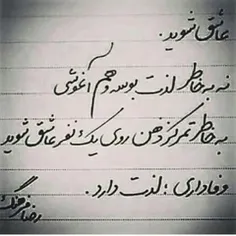 عاشق شوید.
نه به خاطر لذت بوسه و هم آغوشی
به خاطر تمرکز ذهن روی یک نفر عاشق شوید
وفاداری ؛ لذت دارد.